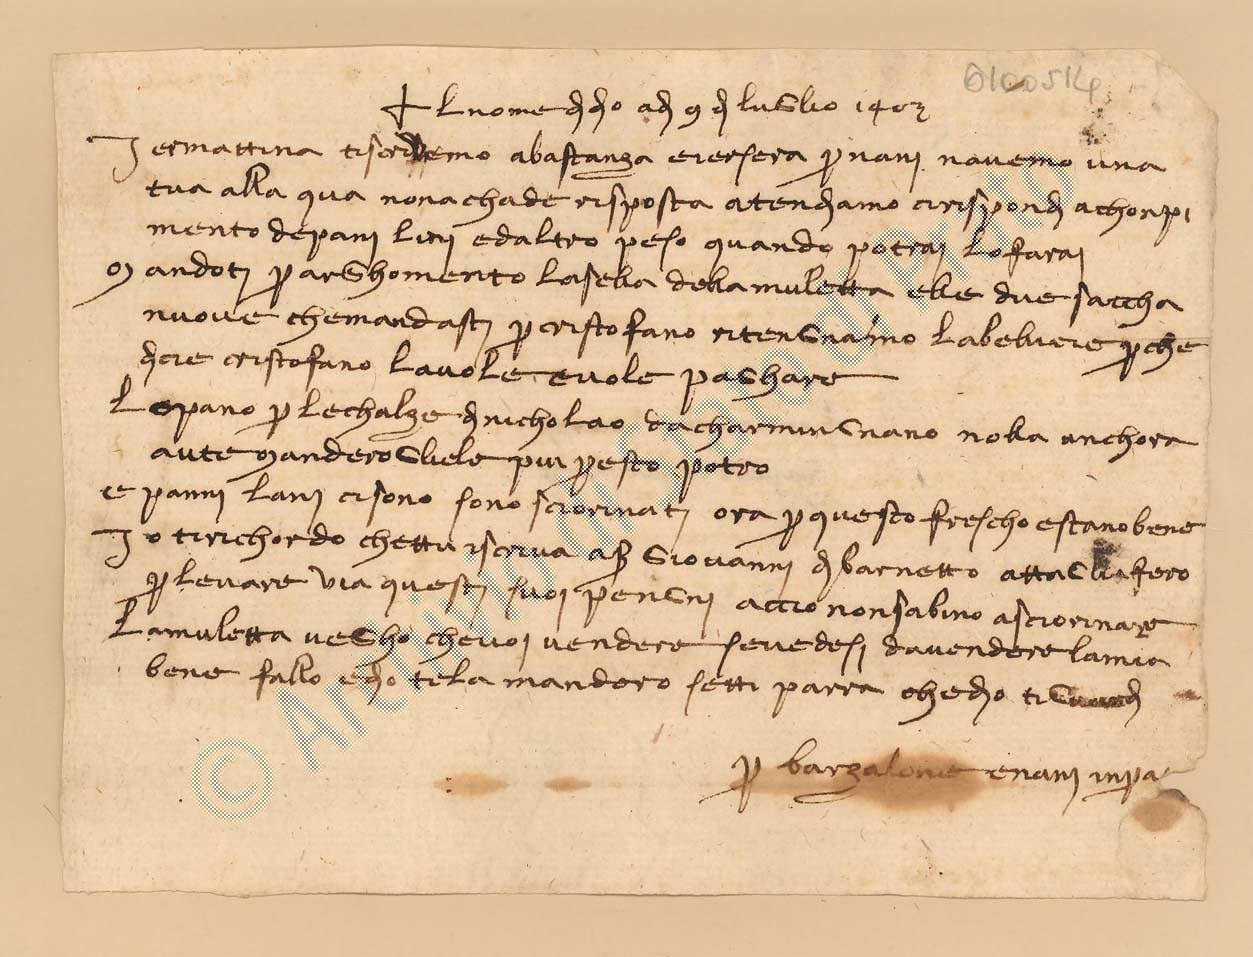 6100514
+ Lnome ddo ad 9 d luGlio 1403
Jermattina tiscrivemo abastanza eiersera p nanj navemo una
tua alla qua nonachade risposta atendiamo cirispondj achonpi
mento depanj linj edaltro peso quando potraj lofaraj
Mandotj p arGhomento lasella dellamuletta elle due saccha
nuove chemandastj p cristofano ritenGniamo labelviere pche
dcie cristofano lavole evole paGhare
Lopano p lechalze dnicholao dacharminGnano nolla anchora
aute manderoGliele piu presto potro
e pannj lanj cisono sono sciorinatj ora p questo frescho estanobene
Jo tirichordo chettu iscriva a s Giovannj dbarnetto
p levare via questj suoj penGnj accio nonsabino asciorinare
Lamuletta veGho chevoj vendere sevedesj davendere lamia
bene fallo eddo tela mandero setti parra cheddo ti Guardj
p barzalone enanj inpa
© Archivio di Stato di Prato